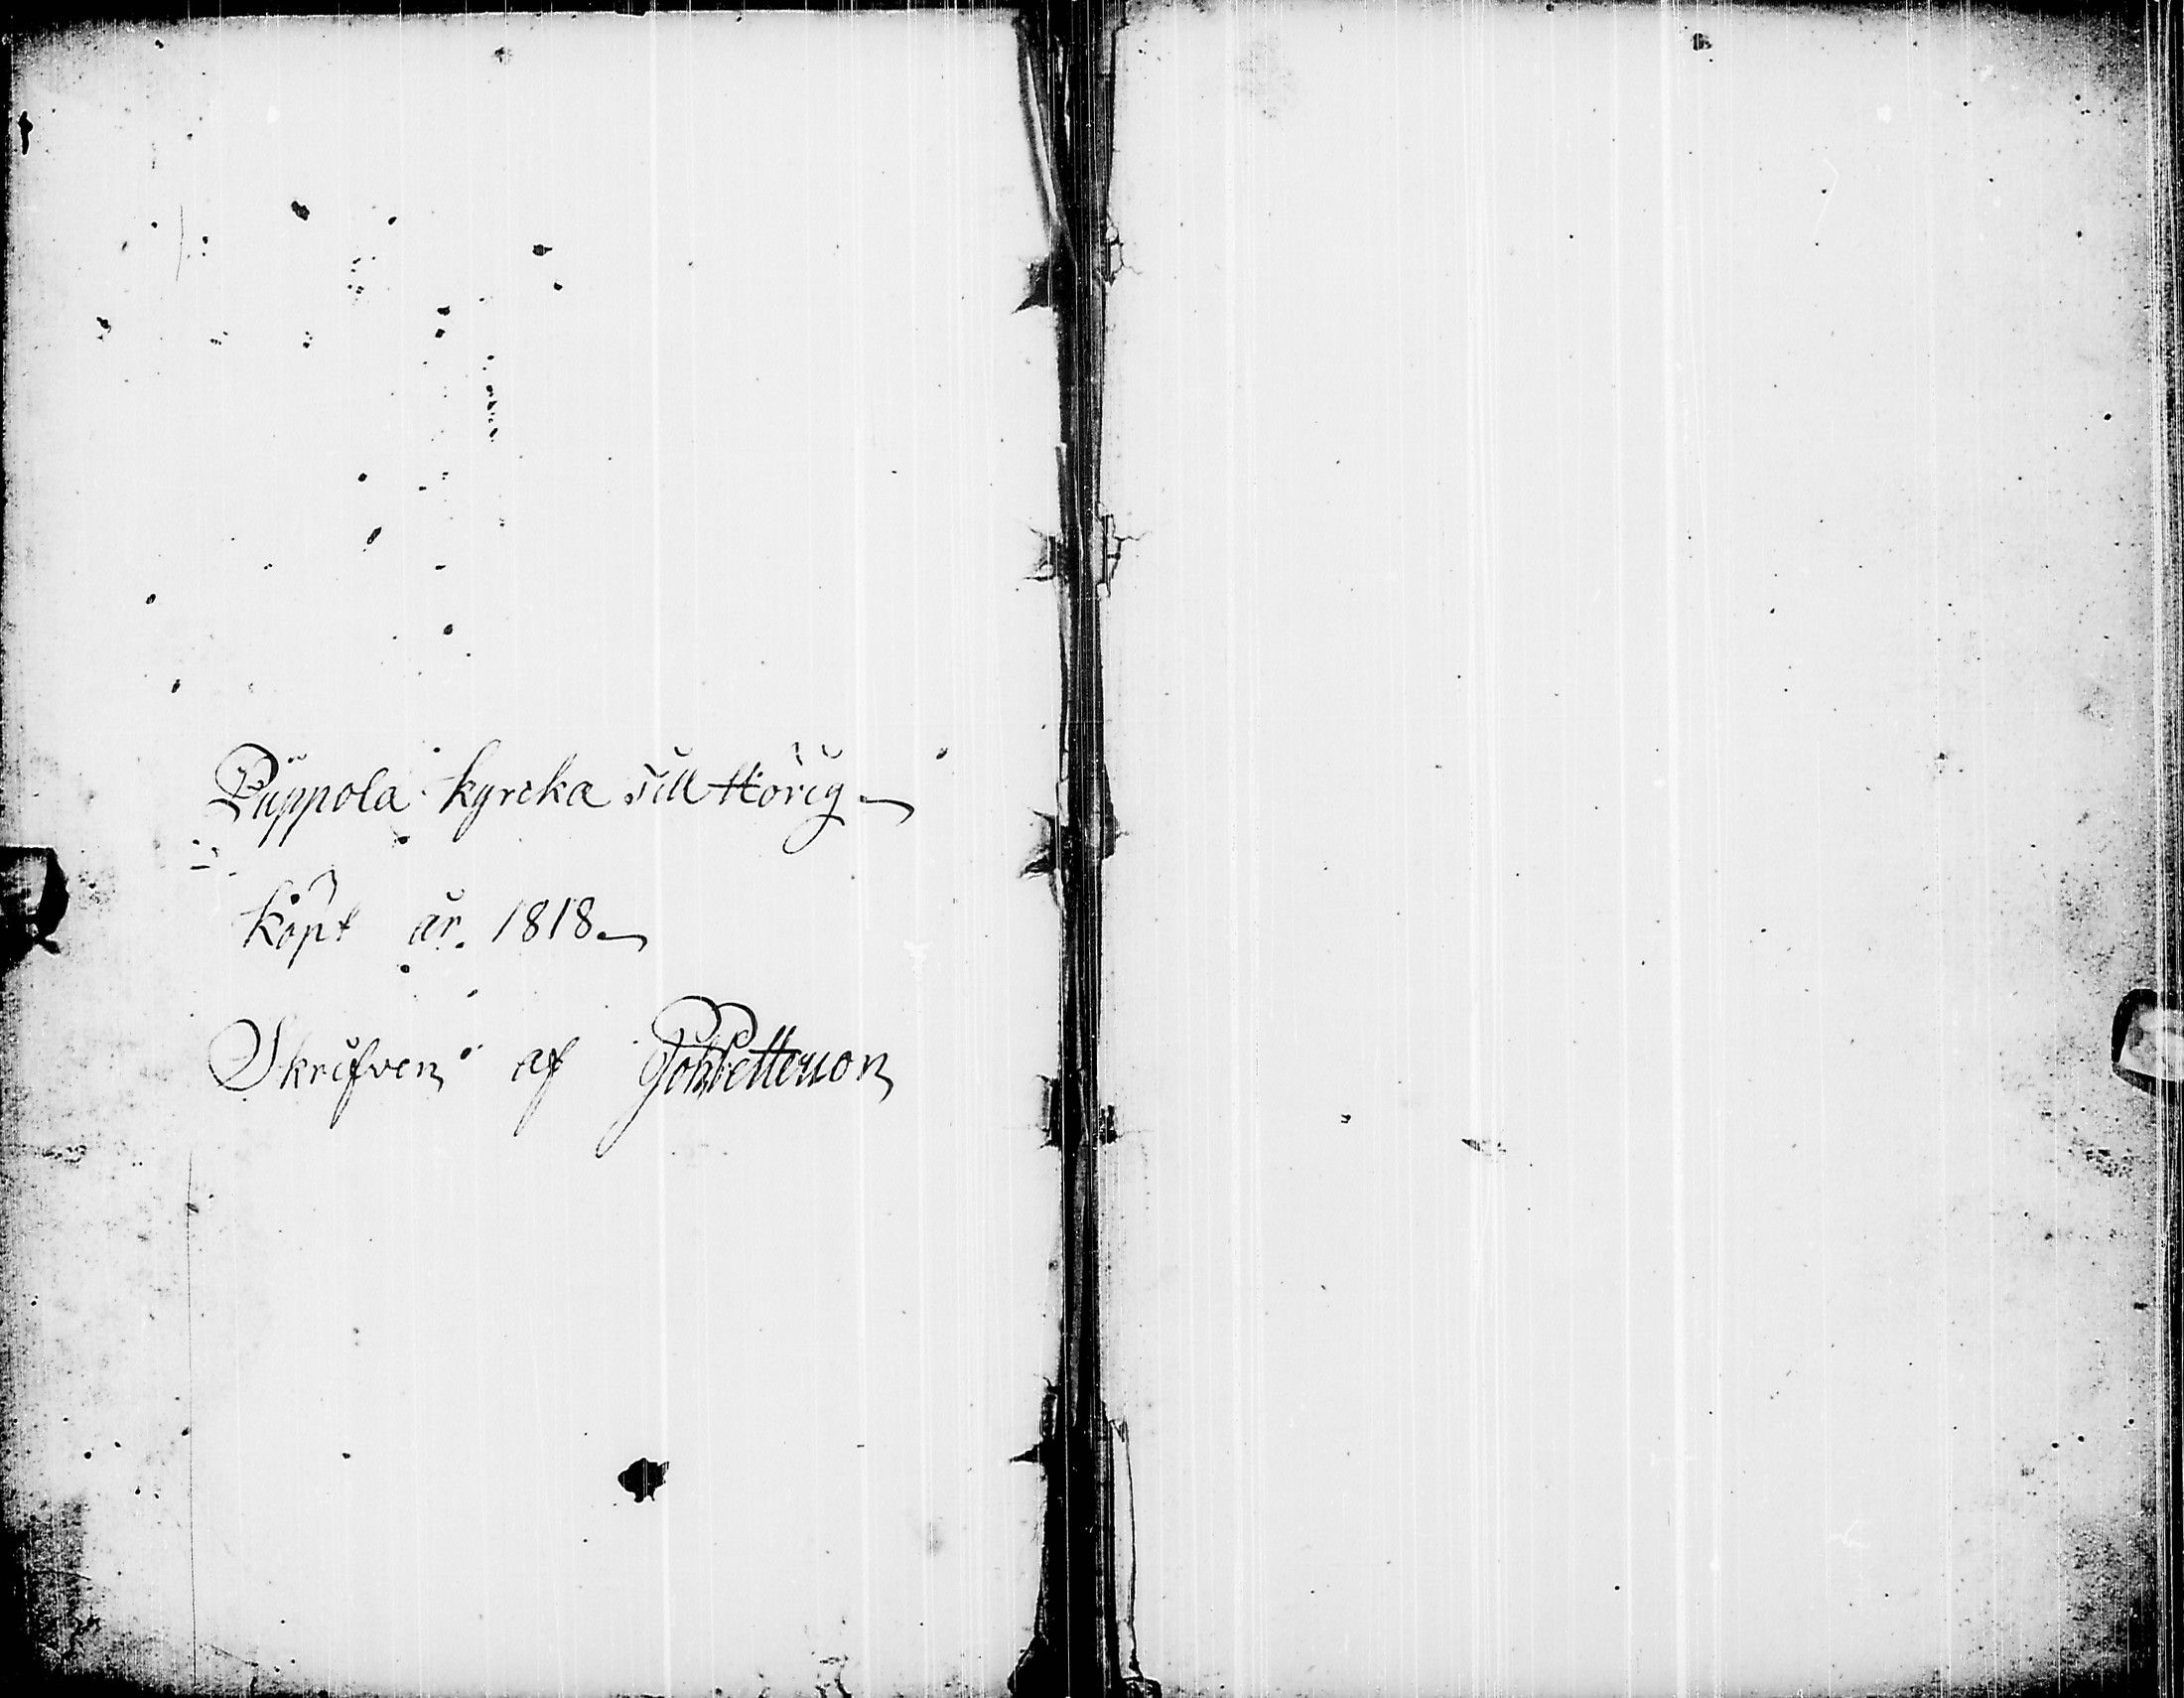 Puppola kyrcka till hörig
köpt år. 1818.
Skrifven af JohPettersson